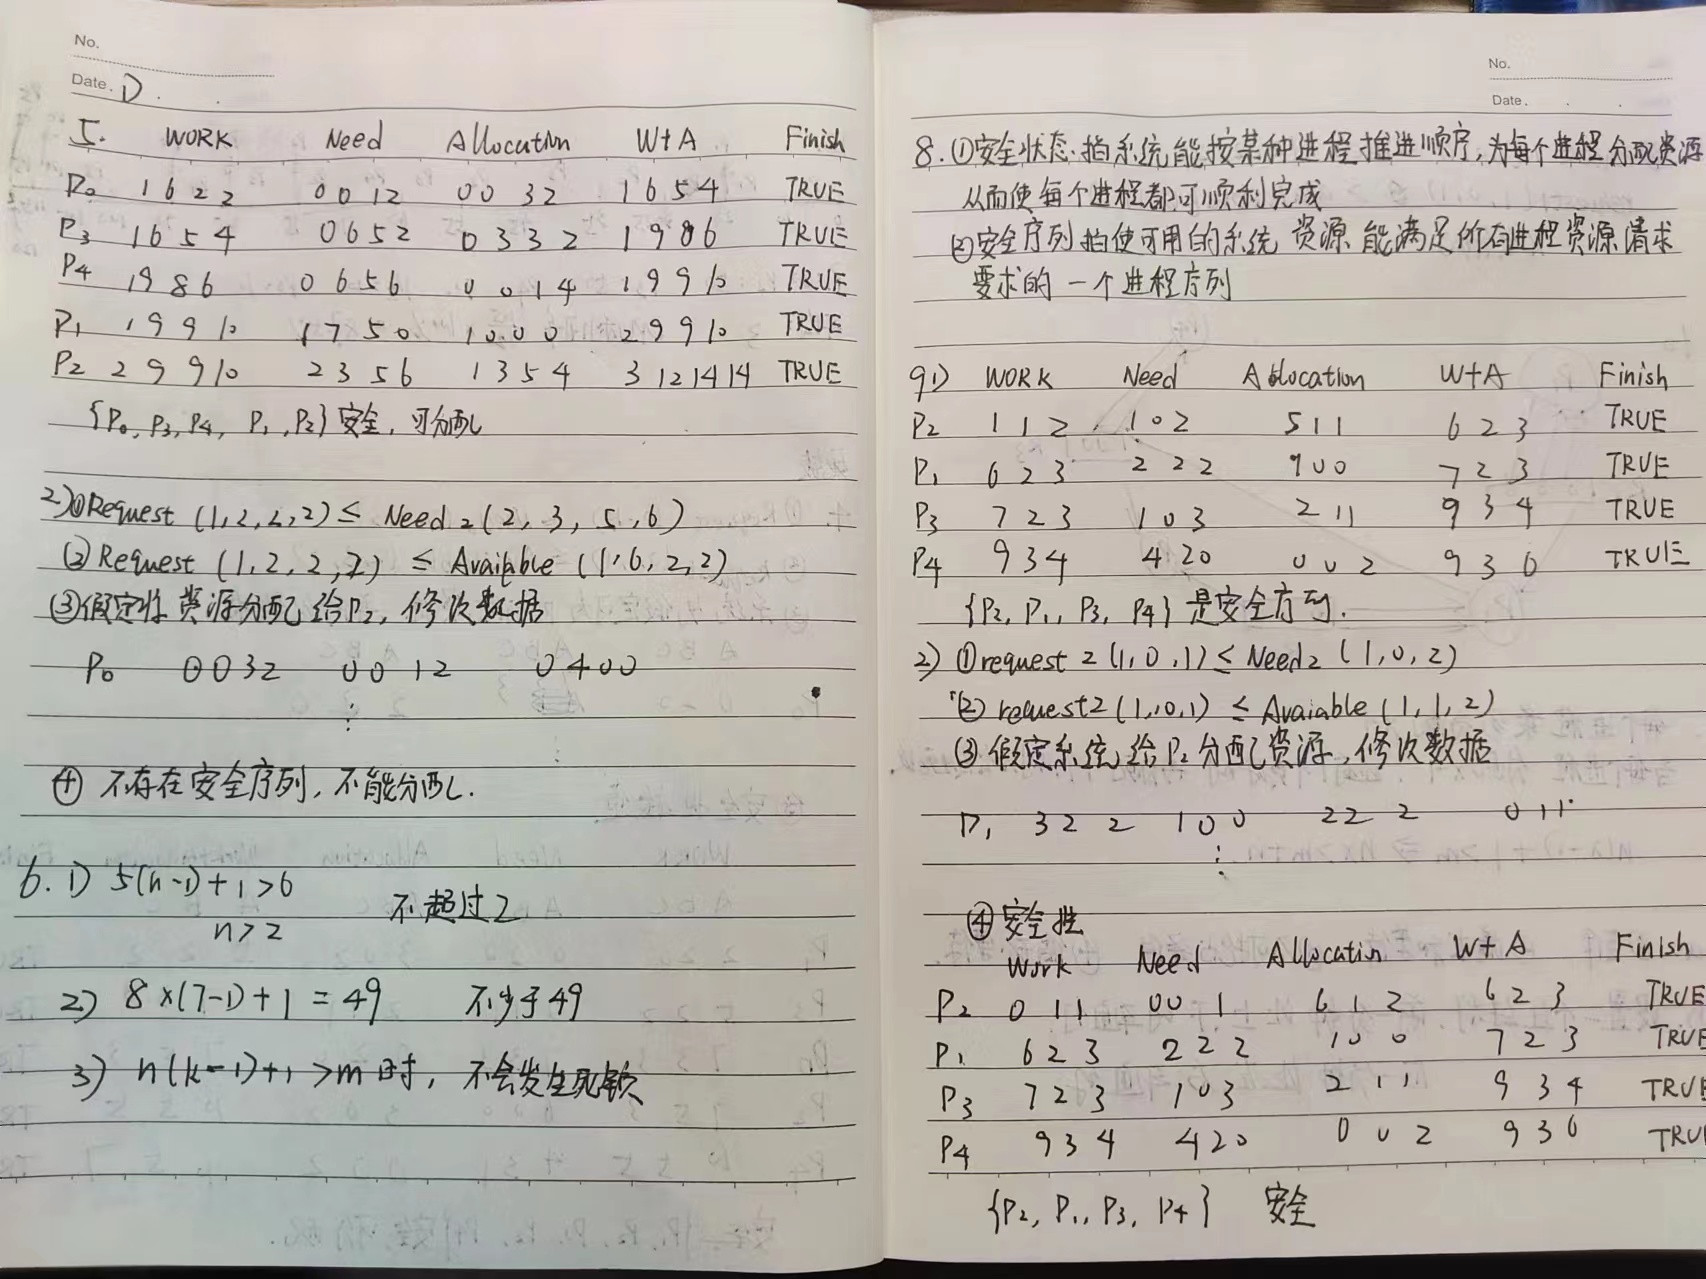 No.
Date. D
5. WORK Need Allocation W+A Finish
P0 1 6 2 2 0 0 1 2 0 0 3 2 1 6 5 4 TRUE
P3 1 6 5 4 0 6 5 2 0 3 3 2 1 9 8 6 TRUE
P4 1 9 8 6 0 6 5 6 0 0 1 4 1 9 9 10 TRUE
P1 1 9 9 10 1 7 5 0 1 0 0 0 2 9 9 10 TRUE
P2 2 9 9 10 2 3 5 6 1 3 5 4 3 12 14 14 TRUE
{P0, P3, P4, P1, P2} 安全, 可分配
2) ① Request (1,2,2,2) ≤ Need2 (2, 3, 5, 6)
② Request (1,2,2,2) ≤ Available (1,6,2,2)
③ 假定将资源分配给P2, 修改数据
P0 0 0 3 2 0 0 1 2 0 4 0 0
⋮
④ 不存在安全序列, 不能分配.
6. 1) 5(n-1)+1>6 不超过2
n>2
2) 8×(7-1)+1=49 不少于49
3) n(k-1)+1>m时, 不会发生死锁
No.
Date.
8. ①安全状态:指系统能按某种进程推进顺序,为每个进程分配资源
从而使每个进程都可顺利完成
②安全序列 指使可用的系统资源能满足所有进程资源请求
要求的一个进程序列
9 1) WORK Need Allocation W+A Finish
P2 1 1 2 1 0 2 5 1 1 6 2 3 TRUE
P1 6 2 3 2 2 2 1 0 0 7 2 3 TRUE
P3 7 2 3 1 0 3 2 1 1 9 3 4 TRUE
P4 9 3 4 4 2 0 0 0 2 9 3 6 TRUE
{P2, P1, P3, P4} 是安全序列.
2) ① request 2 (1,0,1) ≤ Need2 (1,0,2)
② request2 (1,0,1) ≤ Avaiable (1,1,2)
③ 假定系统给P2分配资源, 修改数据
P1 3 2 2 1 0 0 2 2 2 0 1 1
⋮
④ 安全性
Work Need Allocatin W+A Finish
P2 0 1 1 0 0 1 6 1 2 6 2 3 TRUE
P1 6 2 3 2 2 2 1 0 0 7 2 3 TRUE
P3 7 2 3 1 0 3 2 1 1 9 3 4 TRUE
P4 9 3 4 4 2 0 0 0 2 9 3 6 TRU
{P2, P1, P3, P4} 安全